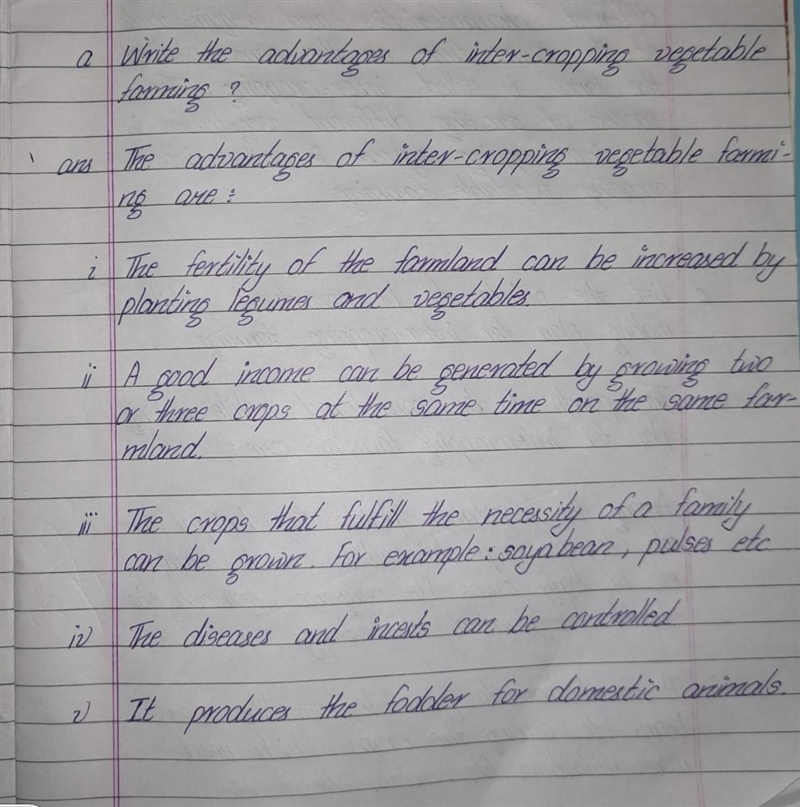 a Write the advantages of inter-cropping vegetable
farming ?
ans The advantages of inter-cropping vegetable farmi-
ng are :
i The fertility of the farmland can be increased by
planting legumes and vegetables.
ii A good income can be generated by growing two
or three crops at the same time on the same far-
mland.
iii The crops that fulfill the necessity of a family
can be grown. For example : soyabean, pulses etc
iv) The diseases and incests can be controlled
v) It produces the fodder for domestic animals.